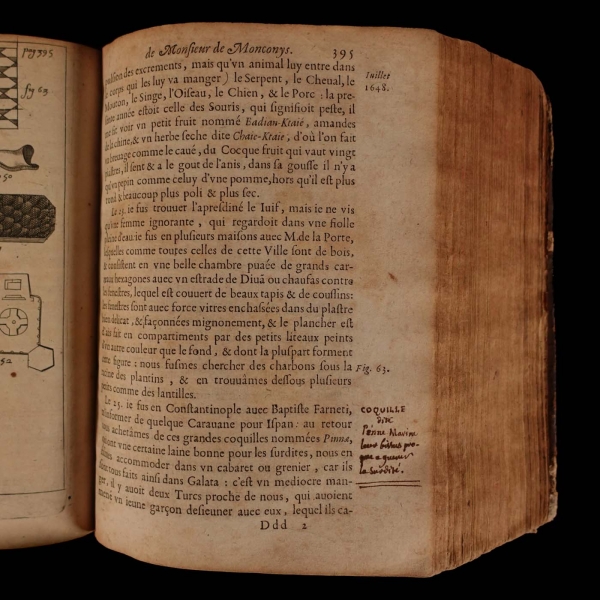 pag 395
fig 63
50
52
de Monsieur de Monconys. 395
Iuillet
1648.
pulsion des excrements, mais qu'vn animal luy entre dans
le corps qui les luy va manger) le Serpent, le Cheual, le
Mouton, le Singe, l'Oiseau, le Chien, & le Porc : la pre-
sente année estoit celle des Souris, qui signifioit peste, il
me fit voir vn petit fruit nommé Badian-Ktaié, amandes
de la chine, & vn herbe seche dite Chaie-Ktaie, d'où l'on fait
vn breuuage comme le caué, du Cocque fruit qui vaut vingt
piastres, il sent & a le gout de l'anis, dans sa gousse il n'y a
qu'vn pepin comme celuy d'vne pomme, hors qu'il est plus
rond & beaucoup plus poli & plus sec.
Le 23. ie fus trouuer l'apresdiné le Iuif, mais ie ne vis
qu'vne femme ignorante, qui regardoit dans vne fiolle
pleine d'eau: ie fus en plusieurs maisons auec M. de la Porte,
lesquelles comme toutes celles de cette Ville sont de bois,
& consistent en vne belle chambre pauée de grands car-
reaux hexagones auec vn estrade de Diuã ou chaufas contre
les fenestres, lequel est couuert de beaux tapis & de coussins:
les fenestres sont auec force vitres enchassées dans du plastre
bien delicat, & façonnées mignonement, & le plancher est
d'ais fait en compartiments par des petits liteaux peints
d'vn autre couleur que le fond, & dont la pluspart forment
cette figure : nous fusmes chercher des charbons sous la
Fig. 63.
racine des plantins, & en trouuâmes dessous plusieurs
petits comme des lantilles.
Le 25. ie fus en Constantinople auec Baptiste Farneti,
m'informer de quelque Carauane pour Ispan: au retour
nous achetâmes de ces grandes coquilles nommées Pinnæ,
qui ont vne certaine laine bonne pour les surdites, nous en
accommoder dans vn cabaret ou grenier, car ils
sont tous faits ainsi dans Galata : c'est vn mediocre man-
ger, il y auoit deux Turcs proche de nous, qui auoient
mené vn ieune garçon desieuner auec eux, lequel ils ca-
Ddd 2
COQUILLE
dite
Penne Marine
leur bissus pro-
pre a guerir
la surdité.